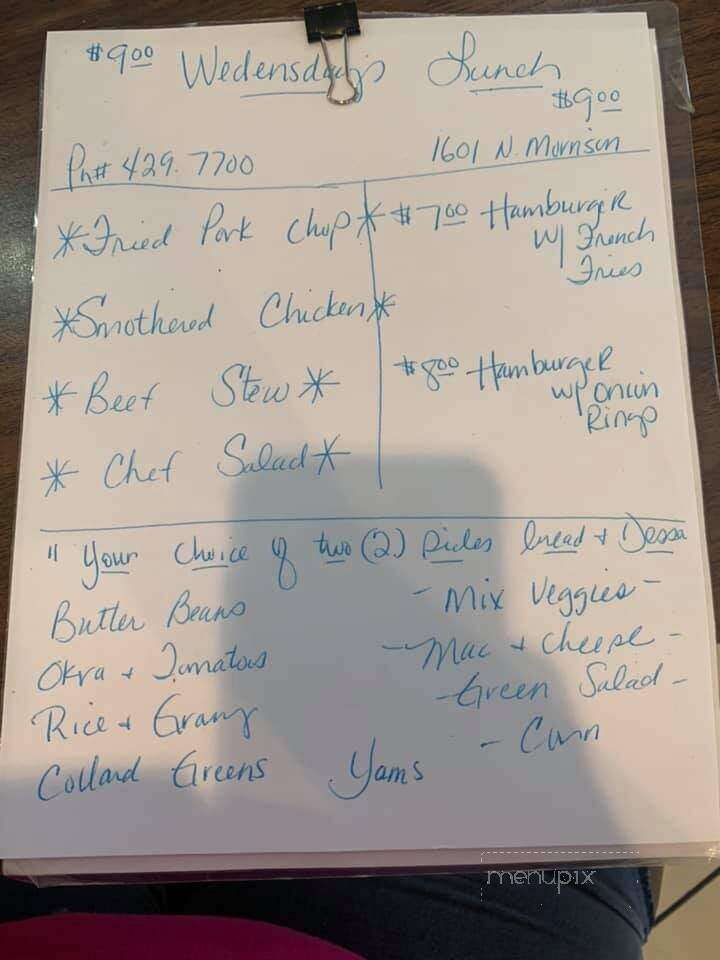 $9.00 Wedensday's Lunch
$9.00
Ph# 429.7700
1601 N. Morrison
*Fried Pork Chop*
*Smothered Chicken*
*Beef Stew*
*Chef Salad*
$7.00 Hamburger
w/ French
Fries
$8.00 Hamburger
w/ Onion
Rings
" Your Choice of two (2) Sides bread + Dessa
Butter Beans
Okra + Tomatoes
Rice + Gravy
Collard Greens
Yams
- Mix Veggies -
- Mac + Cheese -
- Green Salad -
- Corn
menupix